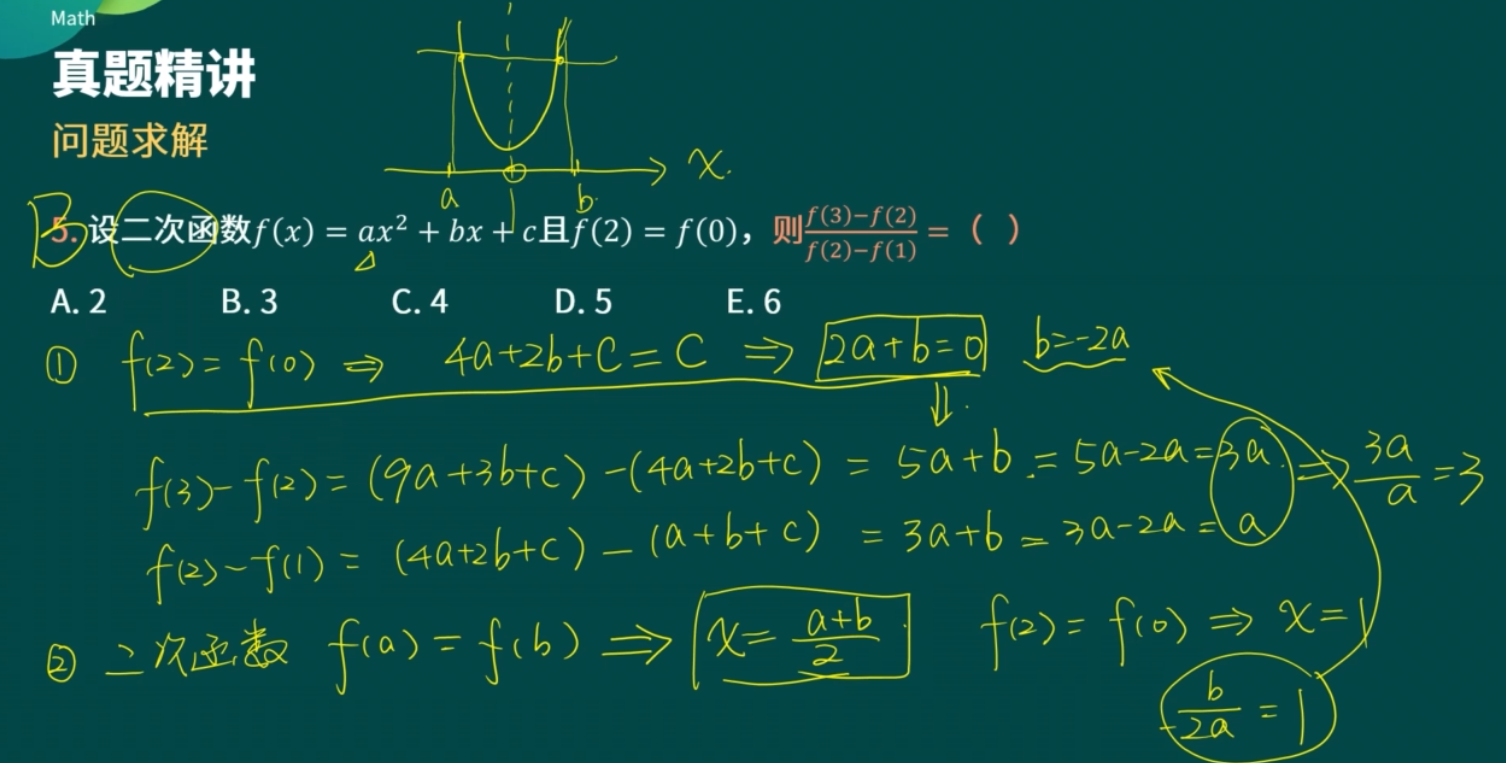 Math
真题精讲
问题求解
x.
a b
B 5. 设二次函数f(x) = ax² + bx + c且f(2) = f(0)，则\frac{f(3)−f(2)}{f(2)−f(1)} = （ ）
A. 2 B. 3 C. 4 D. 5 E. 6
① f(2) = f(0) ⇒ 4a+2b+C = C ⇒ 2a+b=0 b=-2a
f(3)-f(2) = (9a+3b+c) -(4a+2b+c) = 5a+b = 5a-2a = 3a ⇒ \frac{3a}{a} = 3
f(2)-f(1) = (4a+2b+c) - (a+b+c) = 3a+b = 3a-2a = a
② 二次函数 f(a) = f(b) ⇒ x = \frac{a+b}{2} f(2) = f(0) ⇒ x=1
-\frac{b}{2a} = 1